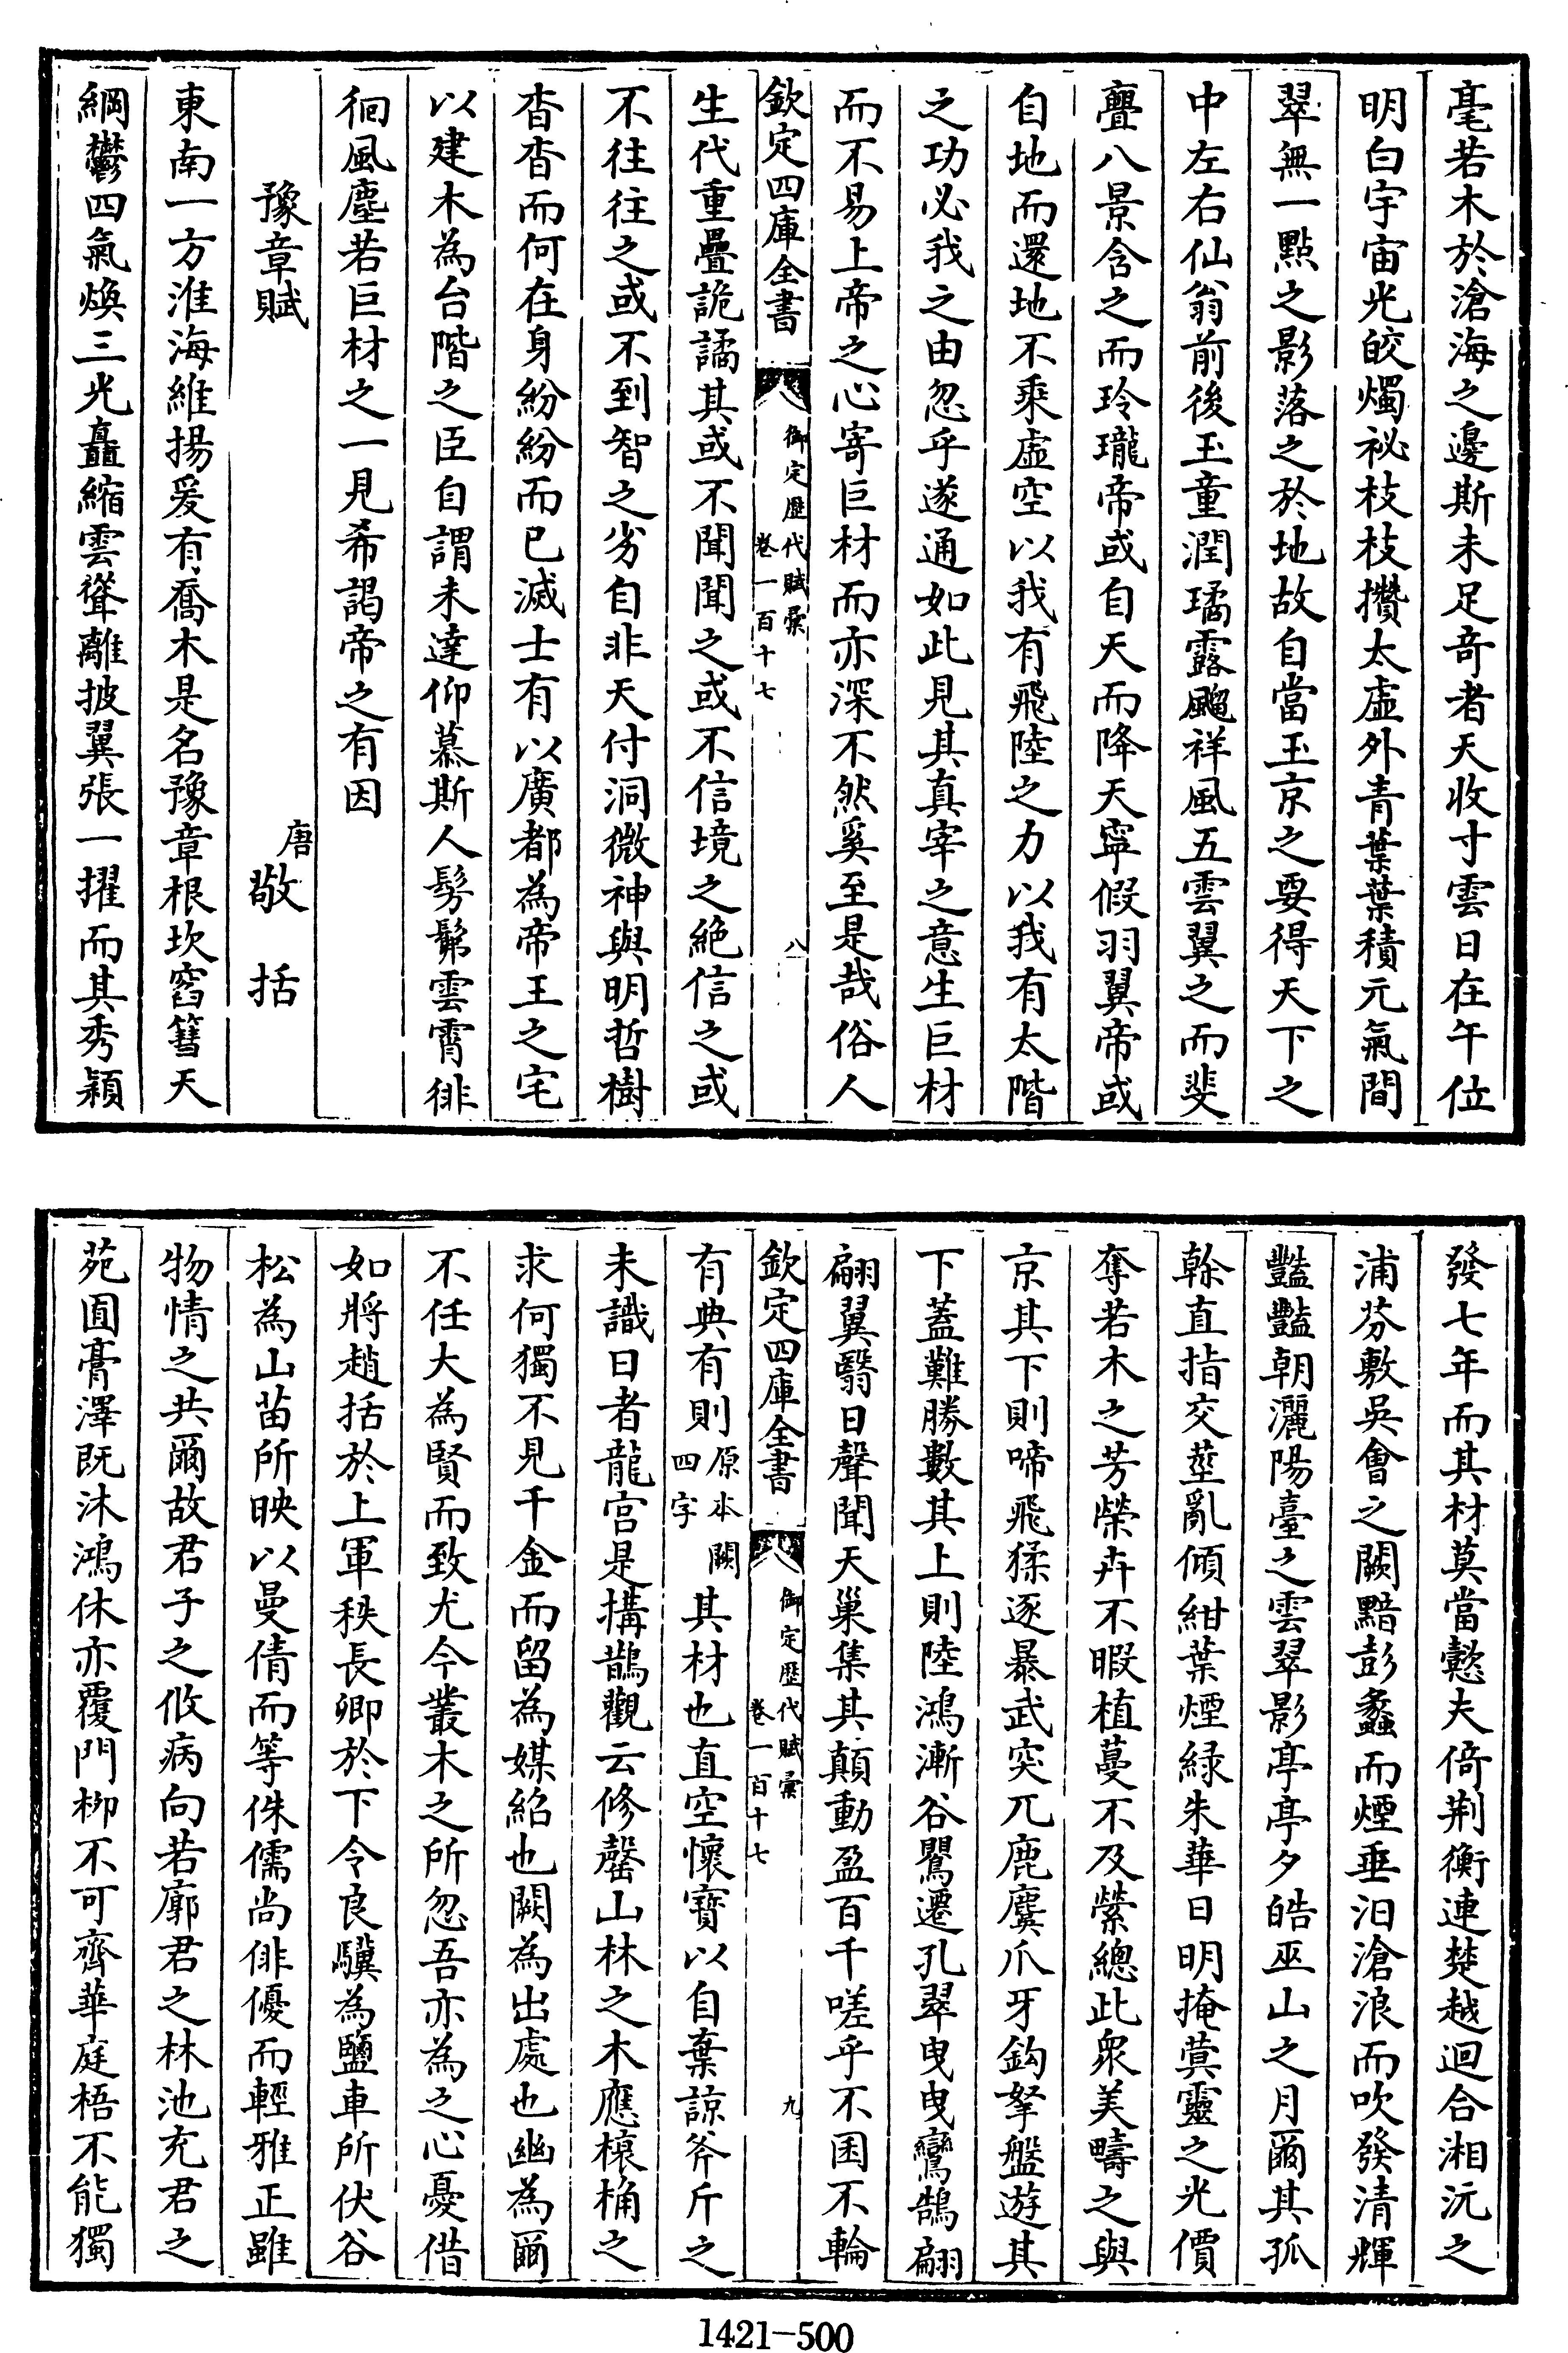 毫若木於滄海之邊斯未足奇者天收寸雲日在午位
明白宇宙光皎燭祕枝枝攢太虛外青葉葉積元氣間
翠無一點之影落之於地故自當玉京之要得天下之
中左右仙翁前後玉童潤璚露飀祥風五雲翼之而斐
亹八景含之而玲瓏帝或自天而降天寜假羽翼帝或
自地而還地不乘虛空以我有飛陸之力以我有太階
之功必我之由忽乎遂通如此見其真宰之意生巨材
而不易上帝之心寄巨材而亦深不然奚至是哉俗人
欽定四庫全書
御定歷代賦彙
卷一百十七
八
生代重疊詭譎其或不聞聞之或不信境之絶信之或
不往往之或不到智之劣自非天付洞微神與明哲樹
杳杳而何在身紛紛而已滅士有以廣都為帝王之宅
以建木為台階之臣自謂未達仰慕斯人髣髴雲霄徘
徊風塵若巨材之一見希謁帝之有因
豫章賦
唐
敬括
東南一方淮海維揚爰有喬木是名豫章根坎窞籉天
綱鬱四氣煥三光矗縮雲聳離披翼張一擢而其秀穎
發七年而其材莫當懿夫倚荆衡連楚越迴合湘沅之
浦芬敷吳會之闕黯彭蠡而煙垂汨滄浪而吹發清輝
豔豔朝灑陽臺之雲翠影亭亭夕皓巫山之月爾其孤
榦直指交莖亂傾紺葉煙緑朱華日明掩蓂靈之光價
奪若木之芳榮卉不暇植蔓不及縈總此衆美疇之與
京其下則啼飛猱逐暴武突兀鹿麌爪牙鈎拏盤遊其
下蓋難勝數其上則陸鴻漸谷鸎遷孔翠曳曳鸞鵠翩
翩翼翳日聲聞天巢集其顛動盈百千嗟乎不困不輪
欽定四庫全書
御定歷代賦彙
卷一百十七
九
有典有則原本闕四字其材也直空懷寳以自棄諒斧斤之
未識曰者龍宫是搆鵲觀云修罄山林之木應榱桷之
求何獨不見千金而留為媒紹也闕為出處也幽為爾
不任大為賢而致尤今叢木之所忽吾亦為之心憂借
如將趙括於上軍秩長卿於下令良驥為鹽車所伏谷
松為山苗所映以曼倩而等侏儒尚俳優而輕雅正雖
物情之共爾故君子之攸病向若廓君之林池充君之
苑囿膏澤既沐鴻休亦覆門栁不可齊華庭梧不能獨
1421-500